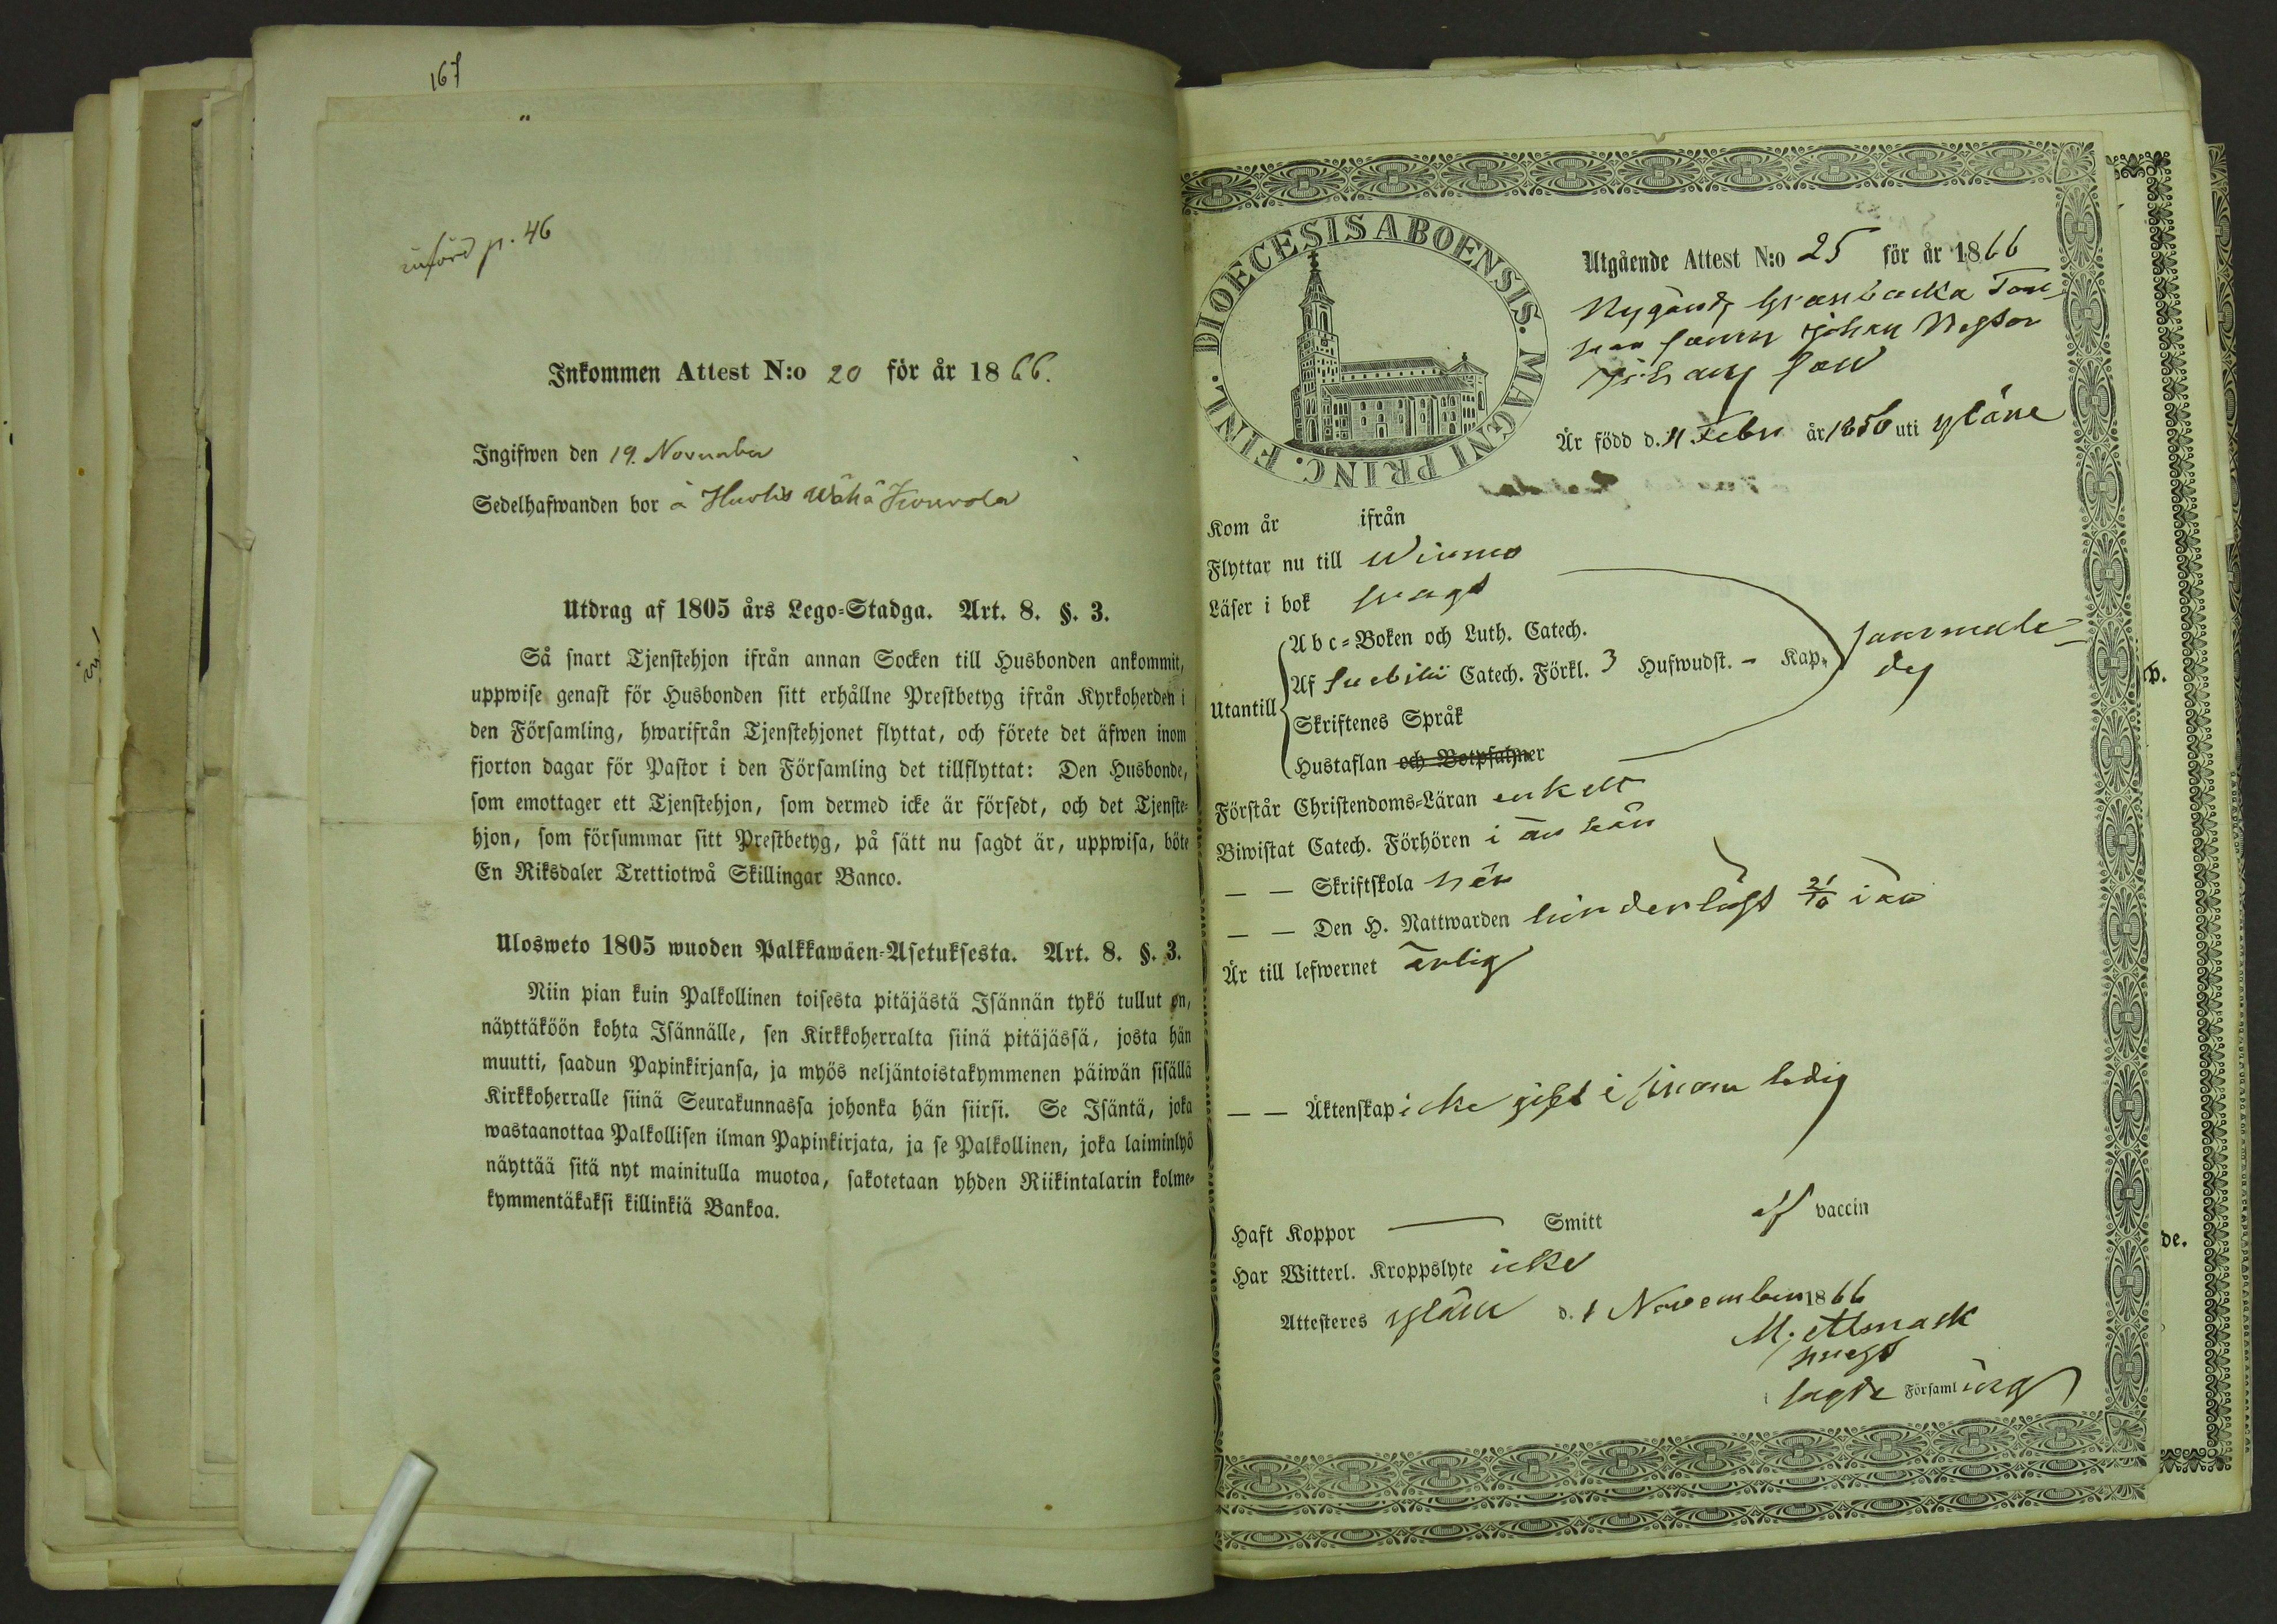 167
införd p. 46
Inkommen Attest N:o 20 för år 1866.
Ingifwen den 19. November
Sedelhafwanden bor å Hurtis Wähä Kouvola
Utdrag af 1805 års Lego-Stadga. Art. 8. §. 3.
Så snart Tjenstehjon ifrån annan Socken till Husbonden ankommit,
uppwise genast för Husbonden sitt erhållne Prestbetyg ifrån Kyrkoherden i
den Församling, hwarifrån Tjenstehjonet flyttat, och förete det äfwen inom
fjorton dagar för Pastor i den Församling det tillflyttat: Den Husbonde,
som emottager ett Tjenstehjon, som dermed icke är försedt, och det Tjenste-
hjon, som försummar sitt Prestbetyg, på sätt nu sagdt är, uppwisa, böte
En Riksdaler Trettiotwå Skillingar Banco.
Ulosweto 1805 wuoden Palkkawäen-Asetuksesta. Art. 8. §. 3.
Niin pian kuin Palkollinen toisesta pitäjästä Isännän tykö tullut on,
näyttäköön kohta Isännälle, sen Kirkkoherralta siinä pitäjässä, josta hän
muutti, saadun Papinkirjansa, ja myös neljäntoistakymmenen päiwän sisällä
Kirkkoherralle siinä Seurakunnassa johonka hän siirsi. Se Isäntä, joka
wastaanottaa Palkollisen ilman Papinkirjata, ja se Palkollinen, joka laiminlyö
näyttää sitä nyt mainitulla muotoa, sakotetaan yhden Riikintalarin kolme-
kymmentäkaksi killinkiä Bankoa.
DIOECESIS ABOENSIS. MAGNI PRINC. FINL.
Utgående Attest N:o 25 för år 1866
Nygårds Granbacka Torp-
sonen Johan Nestor
Johans son
Är född d. 11 Febr år 1850 uti Yläne
Kom år ifrån
Flyttar nu till Wirmo
Läser i bok svagt
Utantill
Abc-Boken och Luth. Catech.
Af Svebilii Catech. Förkl. 3 Hufwudst. - Kap.
Skriftenes Språk
Hustaflan och Botpsalmer
sammale-
des
Förstår Christendoms-Läran enkelt
Biwistat Catech. Förhören i år här
— — Skriftskola här
— — Den H. Nattwarden hinderlöst 21/10 i år
Är till lefwernet ärlig
— — Äktenskap icke gift i Finom ledig
Haft Koppor — Smitt af vaccin
Har Witterl. Kroppslyte icke
Attesteres Yläne d. 1 November 1866
M. Alenack
i sagde Församling